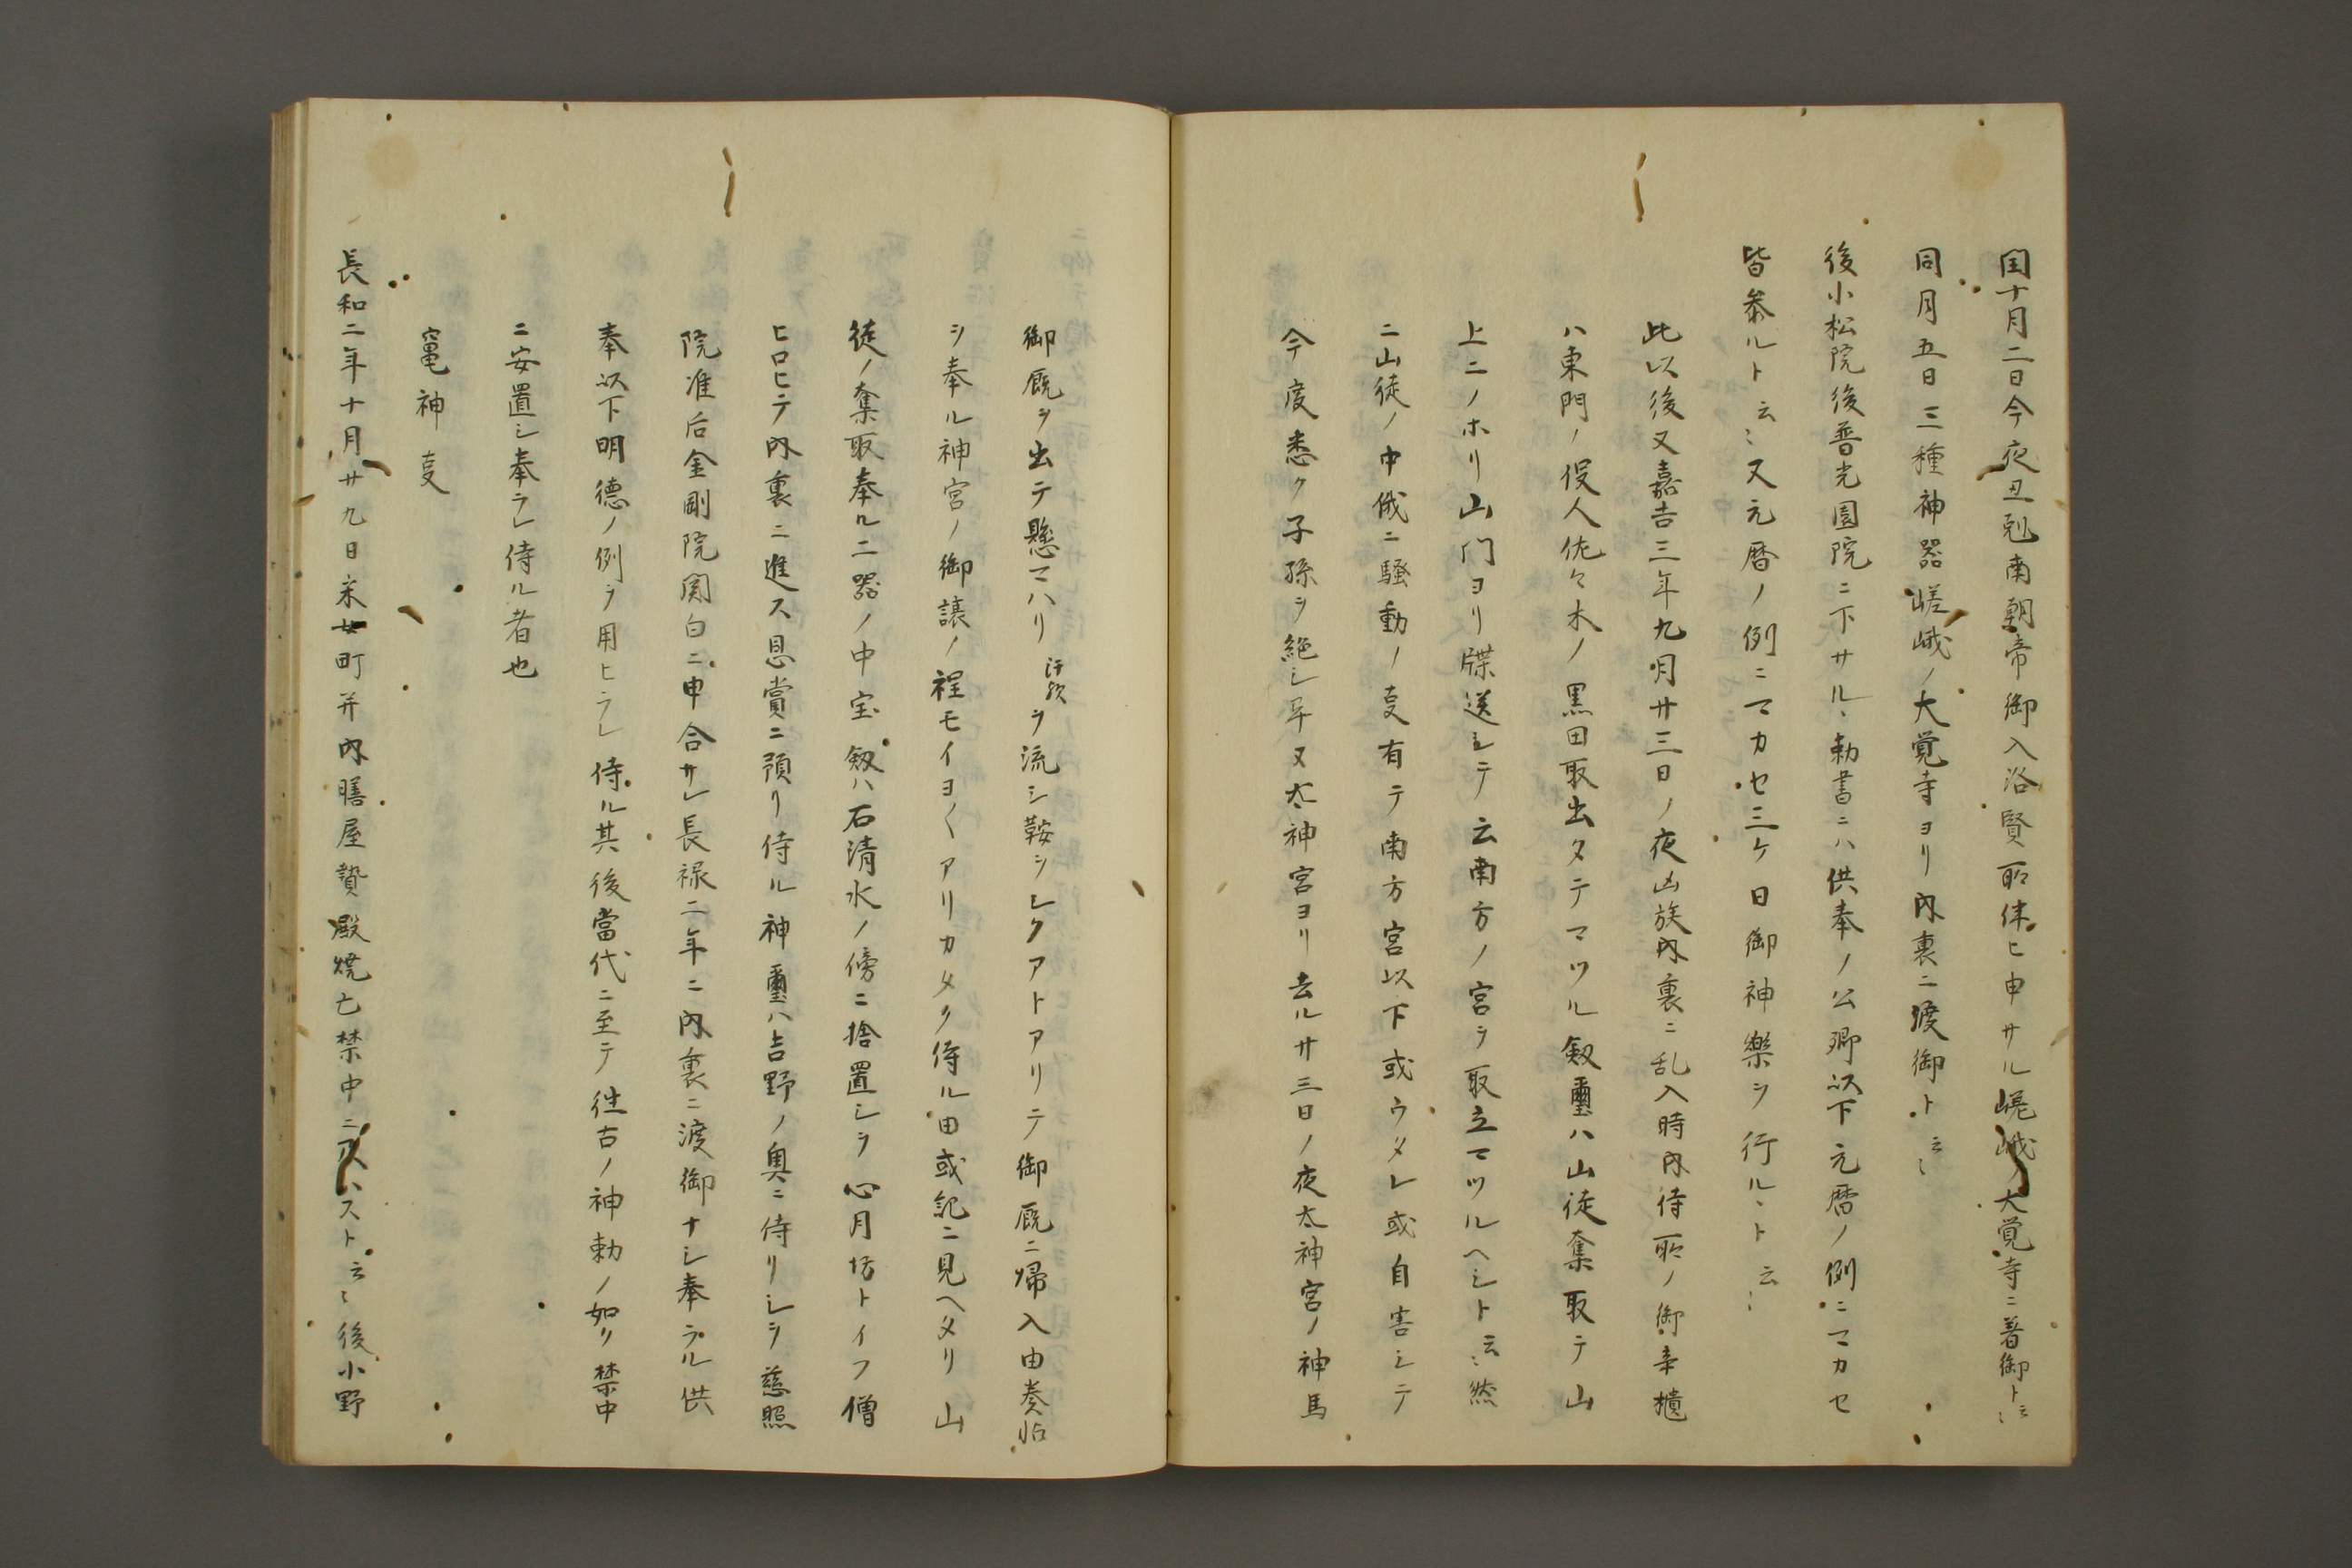 閏十月二日今夜丑剋南朝帝御入洛賢所律ヒ申サル嵯峨ノ大覚寺ニ着御ト云〻
同月五日三種神器嵯峨ノ大覚寺ヨリ内裏ニ渡御ト云〻
後小松院後普光園院ニ下サルヽ勅書ニハ供奉ノ公卿以下元暦ノ例ニマカセ
皆参ルト云〻又元暦ノ例ニマカセ三ケ日御神楽ヲ行ルヽト云〻
此以後又嘉吉三年九月廿三日ノ夜凶族内裏ニ乱入時内侍所ノ御辛櫃
ハ東門ノ役人佐々木ノ黒田取出タテマツル剱璽ハ山徒奪取テ山
上ニノホリ山門ヨリ牒送シテ云南方ノ宮ヲ取立マツルヘシト云〻然
ニ山徒ノ中俄ニ騒動ノ支有テ南方宮以下或ウタレ或自害シテ
今度悉ク子孫ヲ絶シ早又太神宮ヨリ去ル廿三日ノ夜太神宮ノ神馬
御厩ヲ出テ懸マハリ汗ヲ流シ鞍シレクアトアリテ御厩ニ帰入由奏怗
シ奉ル神宮ノ御譲ノ程モイヨ〱アリカタク侍ル由或記ニ見ヘタリ山
徒ノ奪取奉ル二器ノ中宝剱ハ石清水ノ傍ニ捨置シヲ心月坊トイフ僧
ヒロヒテ内裏ニ進ス恩賞ニ預リ侍ル神璽ハ吉野ノ奥ニ侍リシヲ慈照
院准后金剛院関白ニ申合サレ長禄二年ニ内裏ニ渡御ナシ奉ラル供
奉以下明徳ノ例ヲ用ヒラレ侍ル其後當代ニ至テ往古ノ神勅ノ如ク禁中
ニ安置シ奉ラレ侍ル者也
竃神支
長和二年十月廿九日釆女町并内膳屋贄殿焼亡禁中ニ及ハスト云〻後小野